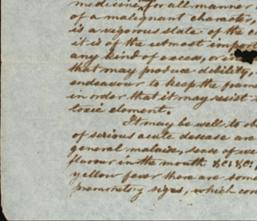 medicine, for all manner
of a malignant character,
is a vigorous state of the
it is of the utmost import
any kind of excess, or in
that may produce debility,
endeavour to keep the frame
in order that it may resist
toxic element.
It may be well to ob
of serious acute disease are
general malaise, sense of
flavour in the mouth &c &c &c
yellow fever there are som
premonitory signs, which con